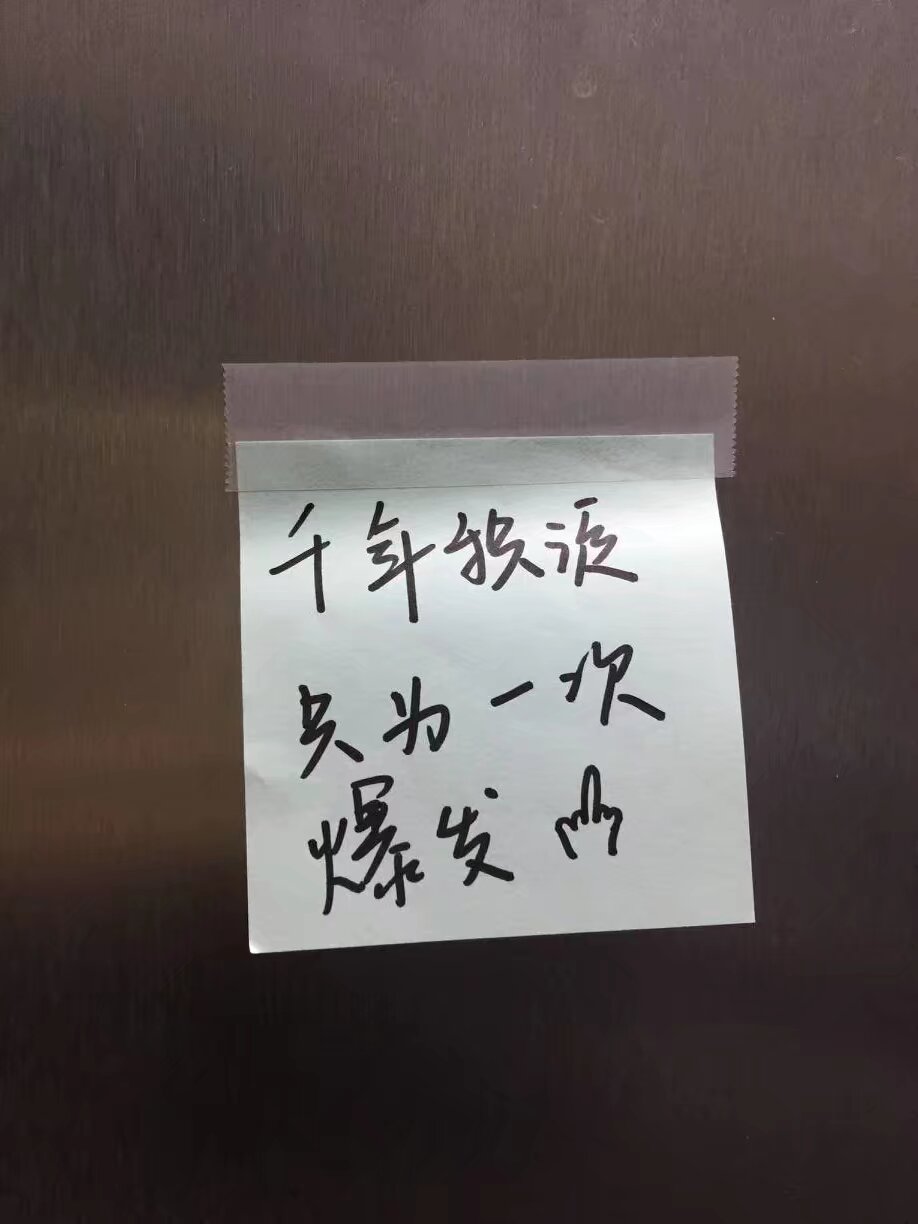 千年积淀
只为一次
爆发